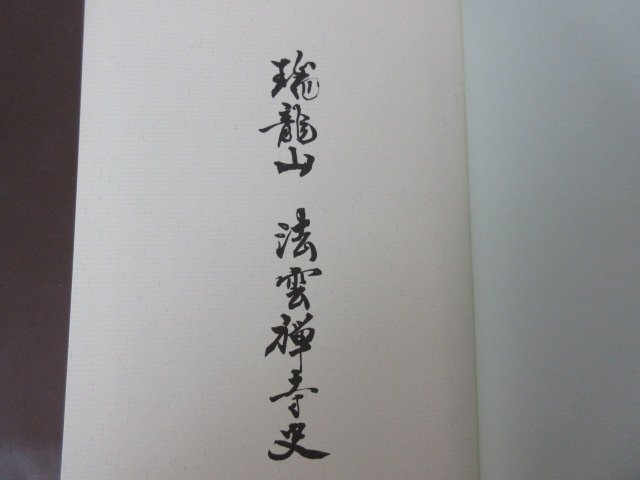 瑞龍山 法雲禅寺史